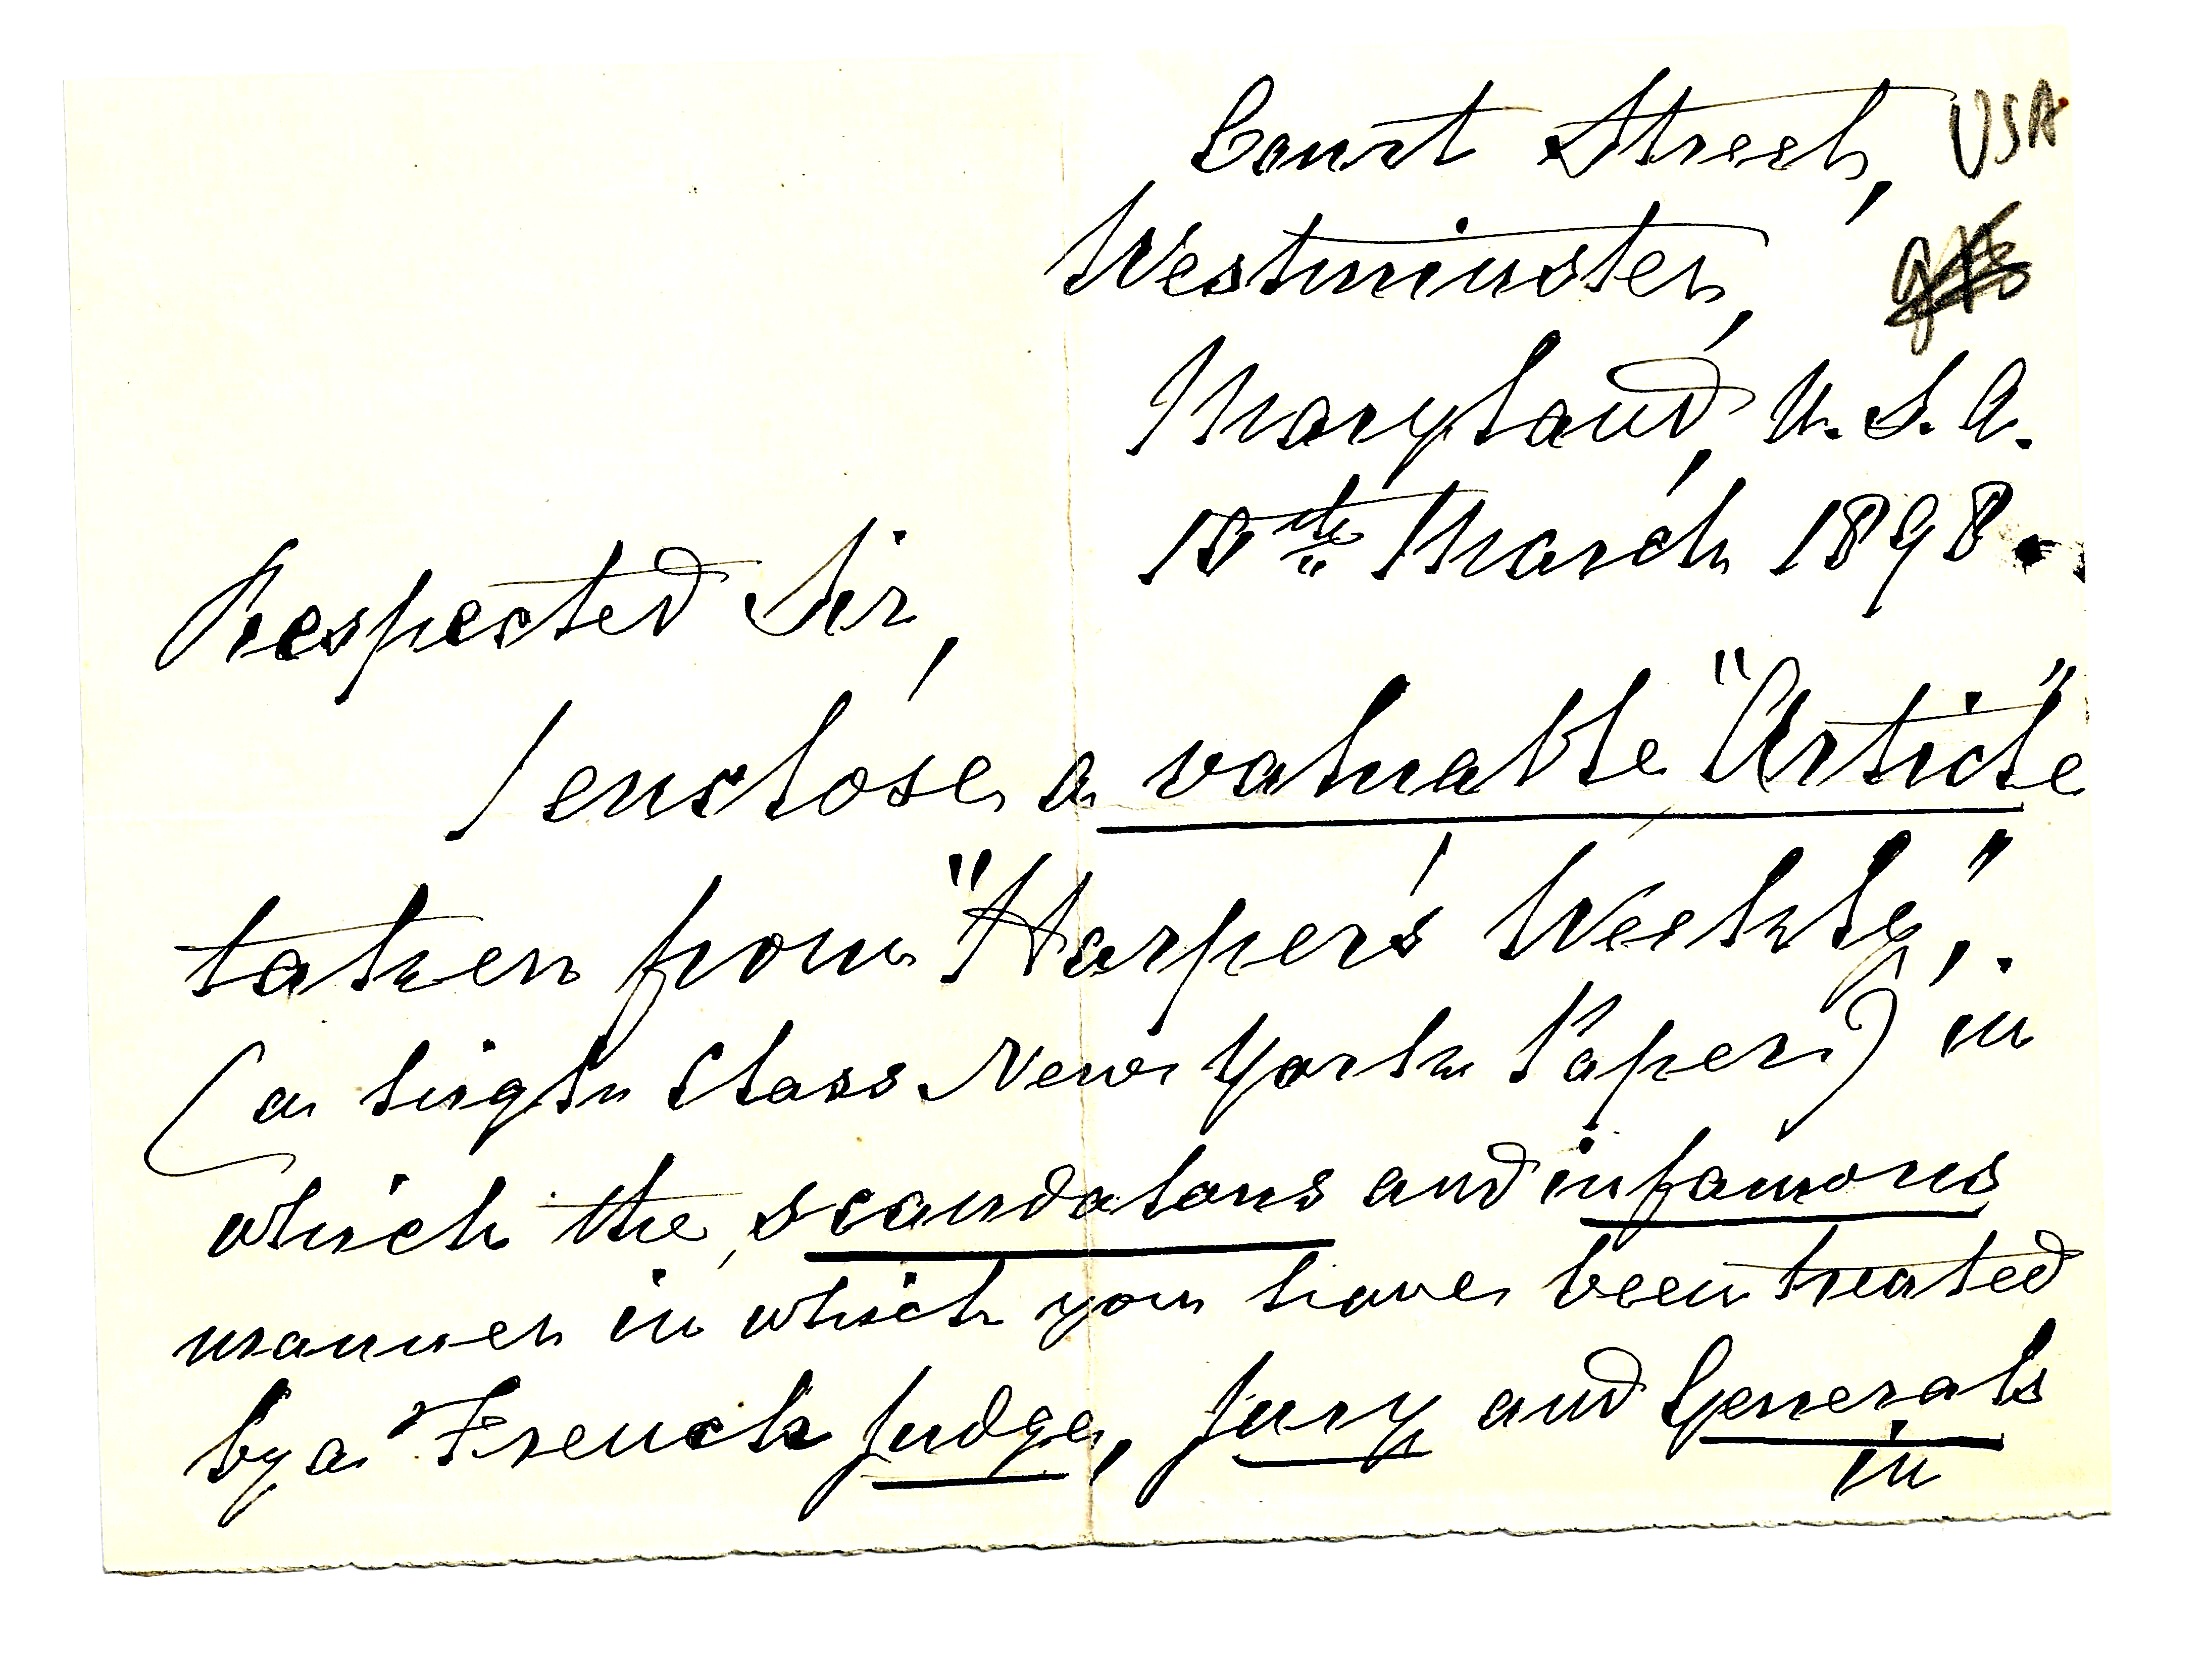 Court Street, USA
Westminster,
Maryland, U. S. A.
15th March 1898.
Respected Sir,
I enclose a valuable "Article"
taken from "Harper's Weekly,".
(a high Class New York Paper) in
which the scandalous and infamous
manner in which you have been treated
by a French Judge, Jury and Generals
in